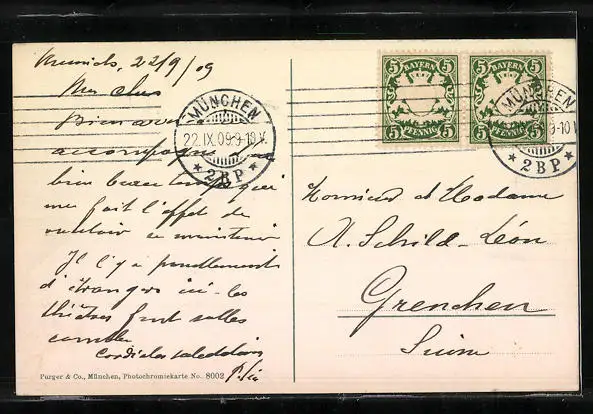 22/9/09
Mes chers
Bien arrivé
accompagné
bien beau temps qui
me fait l'effet de
vouloir se maintenir
Il y a passablement
d'étrangers ici - les
théâtres font salles
combles
Cordiales salutations
MÜNCHEN
22.IX.09 9-10 V.
* 2 B P *
5 BAYERN 5
5 PFENNIG 5
5 BAYERN 5
5 PFENNIG 5
MÜNCHEN
9-10 V.
* 2 B P *
Monsieur et Madame
A. Schild-Léon
Grenchen
Suisse
Purger & Co., München, Photochromiekarte No. 8002